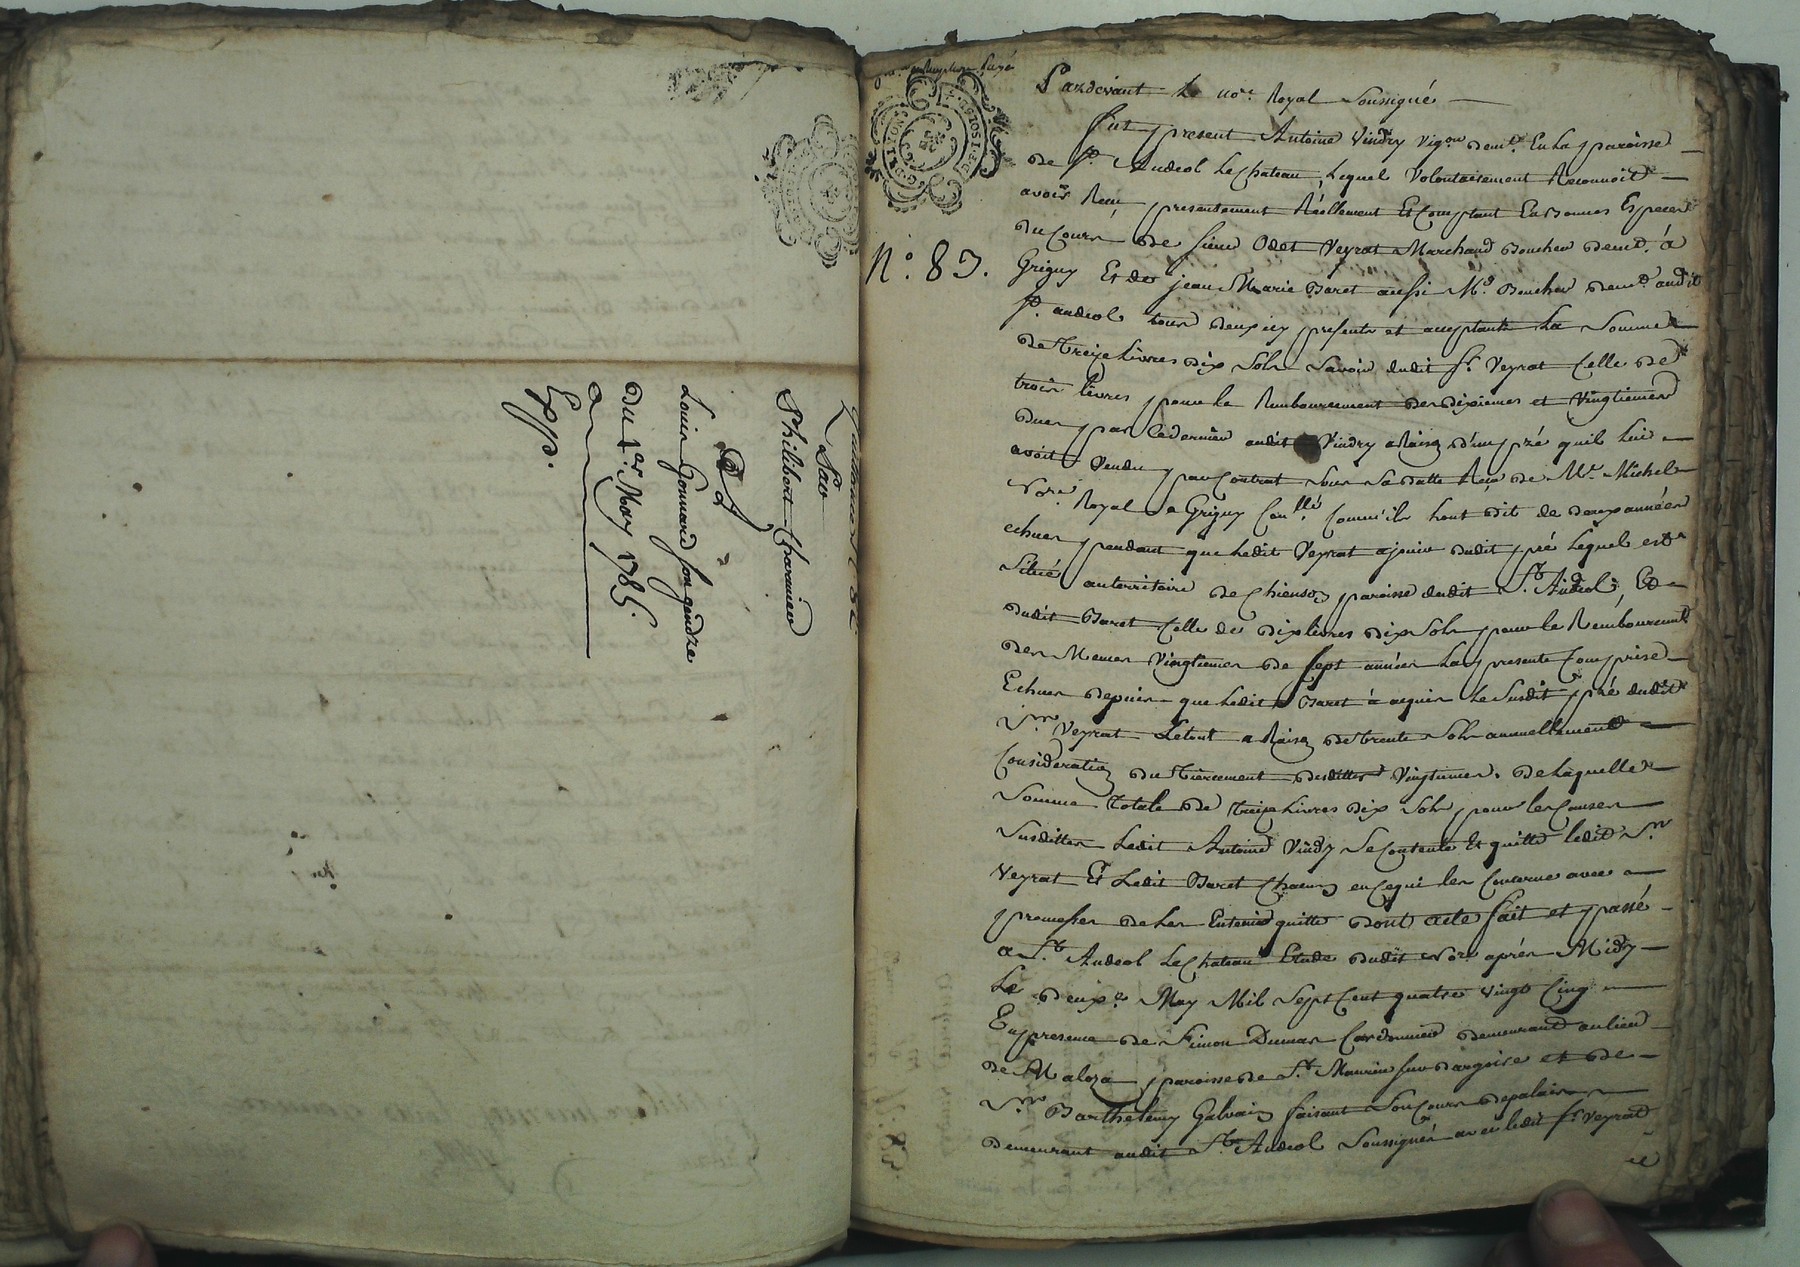 Quittance
Par
Philibert Charnier
à
Louis Gonnard son gendre
du 1er. May 1785.
Exp.
N.° 83.
Pardevant Le no.re Royal Soussigné
fut present Antoine Vindry Vig.on dem.t En La paroisse
de S.t Andeol Le Chateau, Lequel Volontairement Reconnoit
avoir Recu presentement Réellement Et Comptant En bonnes Especes
du Cours de sieur Odet Veyrat Marchand Boucher dem.t à
Grigny Et de jean Marie Baret aussi M.d Boucher dem.t audit
S.t andeol tous deux icy presents et acceptants La Somme
de treize Livres dix Sols Savoir dudit S.r Veyrat Celle de
trois Livres pour le Remboursement des dixiemes et Vingtiemes
dues par ce dernier audit Vindry a Raison d'un pré quil lui
avoit Vendu par Contrat Sous Sa datte Recu de M.e Michel
No.re Royal a Grigny Con.lle Comm'ils hont dit de deux années
echues pendant que Ledit Veyrat a joui dudit pré Lequel est
Situé au territoire de Chienson paroisse dudit S.t Andeol; Et
dudit Baret Celle de dix livres dix Sols pour le Remboursement
des Memes Vingtiemes de Sept années La presente Comprise
Echues depuis que Ledit Baret à acquis Le Susdit pré dudit
S.r Veyrat Le tout a Raison de trente Sols annuellement
Consideration du tiercement desdittes Vingtiemes. de Laquelle
Somme totale de treize Livres dix Sols pour les Causes
Susdittes Ledit Antoine Vindry Se Contente Et quitte ledit S.r
Veyrat Et Ledit Baret Chacun en Ce qui les Concerne avec
promesses de Les En tenir quitte dont acte fait et passé
a S.t Andeol Le Chateau Etude dudit No.re après Midy
Le deux.e May Mil Sept Cent quatre Vingt Cinq
En presence de Simon Dumas Cordonnier demeurant au lieu
de Maloza paroisse de S.t Maurice sur dargoire et de
S.r Barthelemy Galvain faisant Son Cours de palais
demeurant audit S.t Andeol Soussignés avec ledit S.r Veyrat